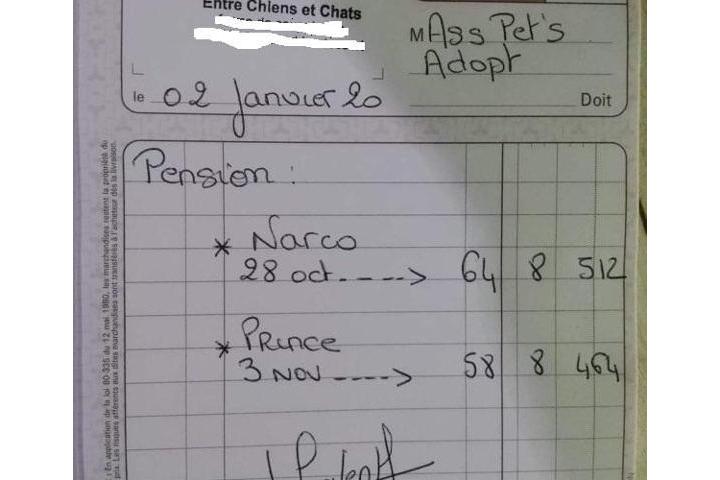 Entre Chiens et Chats
M Ass Pet's
Adopt
le 02 Janvier 20
Doit
Pension :
* Narco
28 oct. ----> 64 8 512
* Prince
3 NOV ----> 58 8 464
: En application de la loi 80-335 du 12 mai 1980, les marchandises restent la propriété du
prix. Les risques afférents aux dites marchandises sont transférés à l'acheteur dès la livraison.